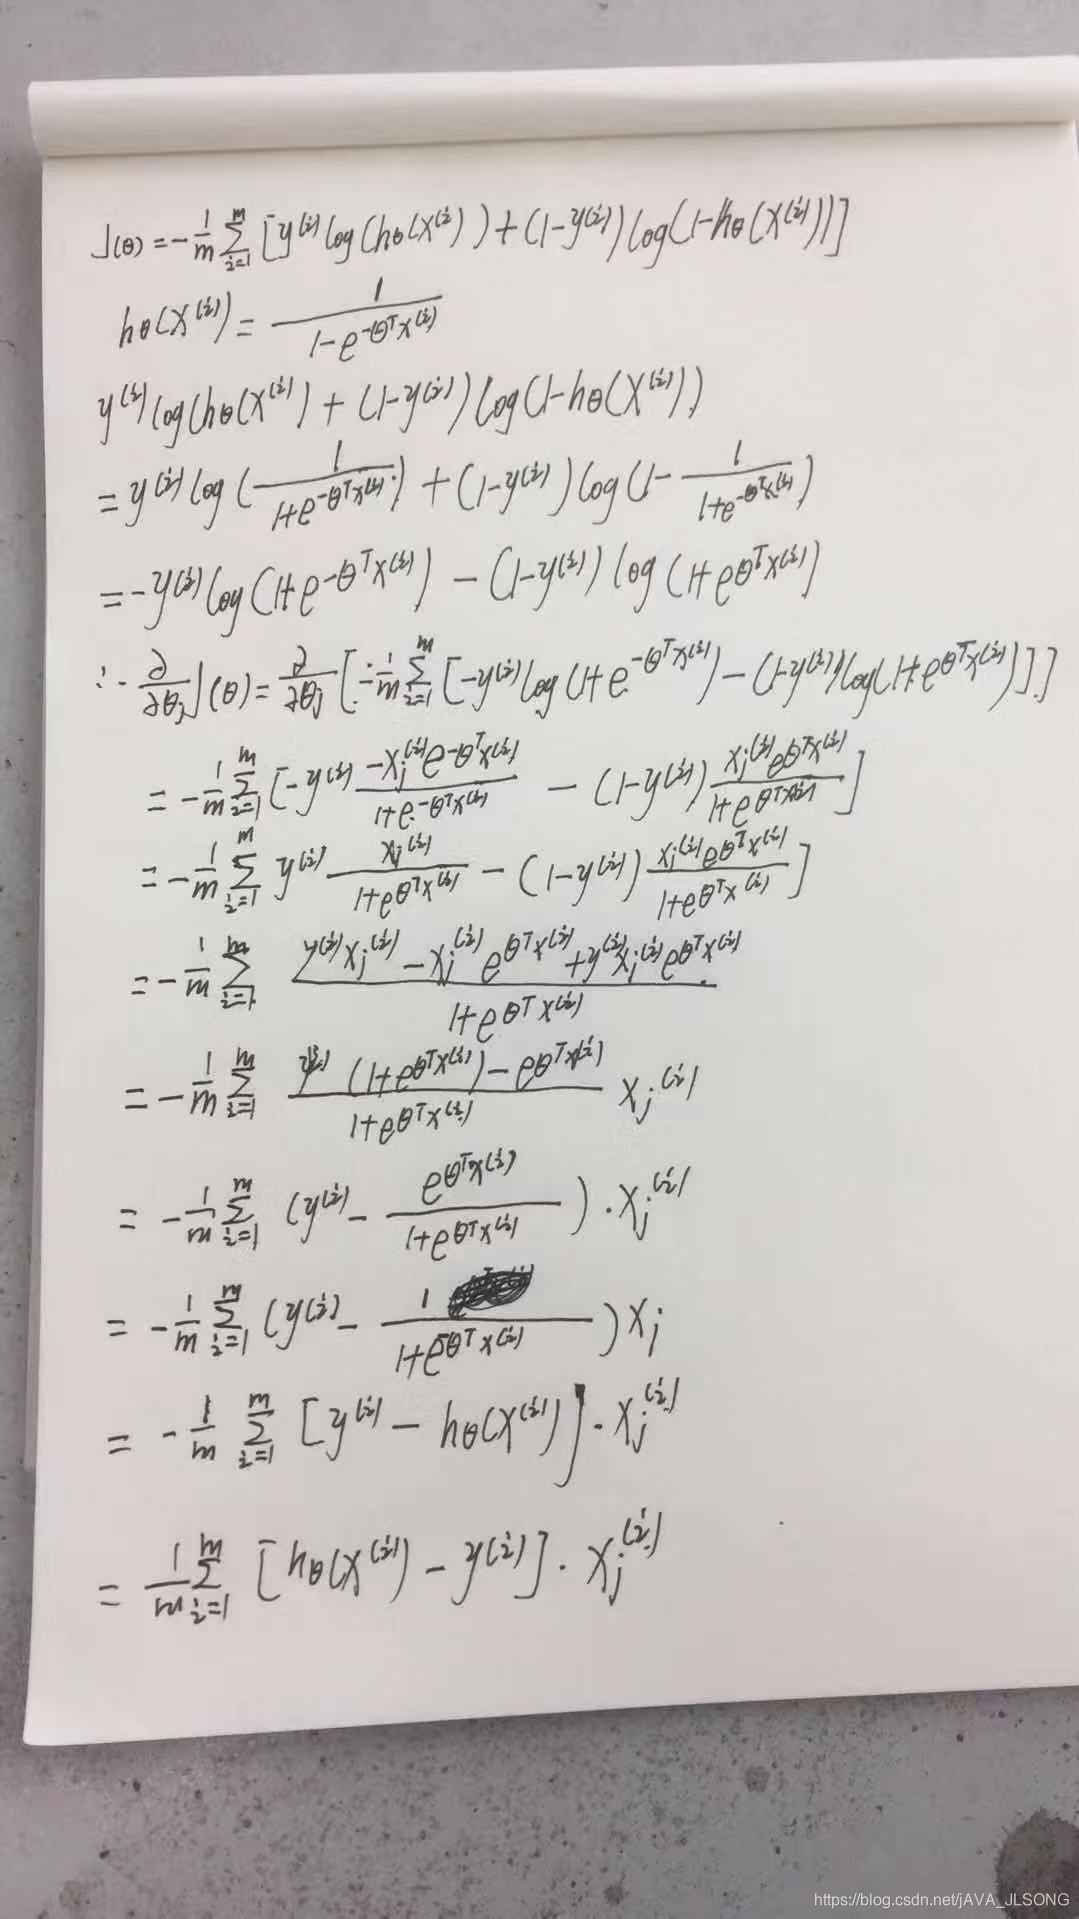 J(θ) = -1/m Σ_{i=1}^{m} [y^{(i)} log(hθ(x^{(i)})) + (1-y^{(i)}) log(1-hθ(x^{(i)}))]
hθ(x^{(i)}) = 1/(1-e^{-θ^T x^{(i)}})
y^{(i)} log(hθ(x^{(i)}) + (1-y^{(i)}) log(1-hθ(x^{(i)}))
= y^{(i)} log(1/(1+e^{-θ^T x^{(i)}})) + (1-y^{(i)}) log(1- 1/(1+e^{-θ^T x^{(i)}}))
= -y^{(i)} log(1+e^{-θ^T x^{(i)}}) - (1-y^{(i)}) log(1+e^{θ^T x^{(i)}})
∴ ∂/∂θj J(θ) = ∂/∂θj [-1/m Σ_{i=1}^{m} [-y^{(i)} log(1+e^{-θ^T x^{(i)}}) - (1-y^{(i)}) log(1+e^{θ^T x^{(i)}})]]
= -1/m Σ_{i=1}^{m} [-y^{(i)} (-xj^{(i)} e^{-θ^T x^{(i)}})/(1+e^{-θ^T x^{(i)}}) - (1-y^{(i)}) (xj^{(i)} e^{θ^T x^{(i)}})/(1+e^{θ^T x^{(i)}})]
= -1/m Σ_{i=1}^{m} y^{(i)} xj^{(i)}/(1+e^{θ^T x^{(i)}}) - (1-y^{(i)}) (xj^{(i)} e^{θ^T x^{(i)}})/(1+e^{θ^T x^{(i)}})]
= -1/m Σ_{i=1}^{m} (y^{(i)} xj^{(i)} - xj^{(i)} e^{θ^T x^{(i)}} + y^{(i)} xj^{(i)} e^{θ^T x^{(i)}})/(1+e^{θ^T x^{(i)}})
= -1/m Σ_{i=1}^{m} (y^{(i)} (1+e^{θ^T x^{(i)}}) - e^{θ^T x^{(i)}})/(1+e^{θ^T x^{(i)}}) xj^{(i)}
= -1/m Σ_{i=1}^{m} (y^{(i)} - e^{θ^T x^{(i)}}/(1+e^{θ^T x^{(i)}})) · xj^{(i)}
= -1/m Σ_{i=1}^{m} (y^{(i)} - 1/(1+e^{-θ^T x^{(i)}})) xj
= -1/m Σ_{i=1}^{m} [y^{(i)} - hθ(x^{(i)})] · xj^{(i)}
= 1/m Σ_{i=1}^{m} [hθ(x^{(i)}) - y^{(i)}] · xj^{(i)}
https://blog.csdn.net/jAVA_JLSONG